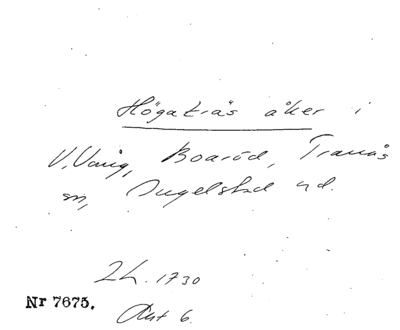 Högatrås åker i
V. Vång, Boaröd, Tranås
sn, Ingelstad hd.
2 L. 1730
Nr 7675.
Akt 6.